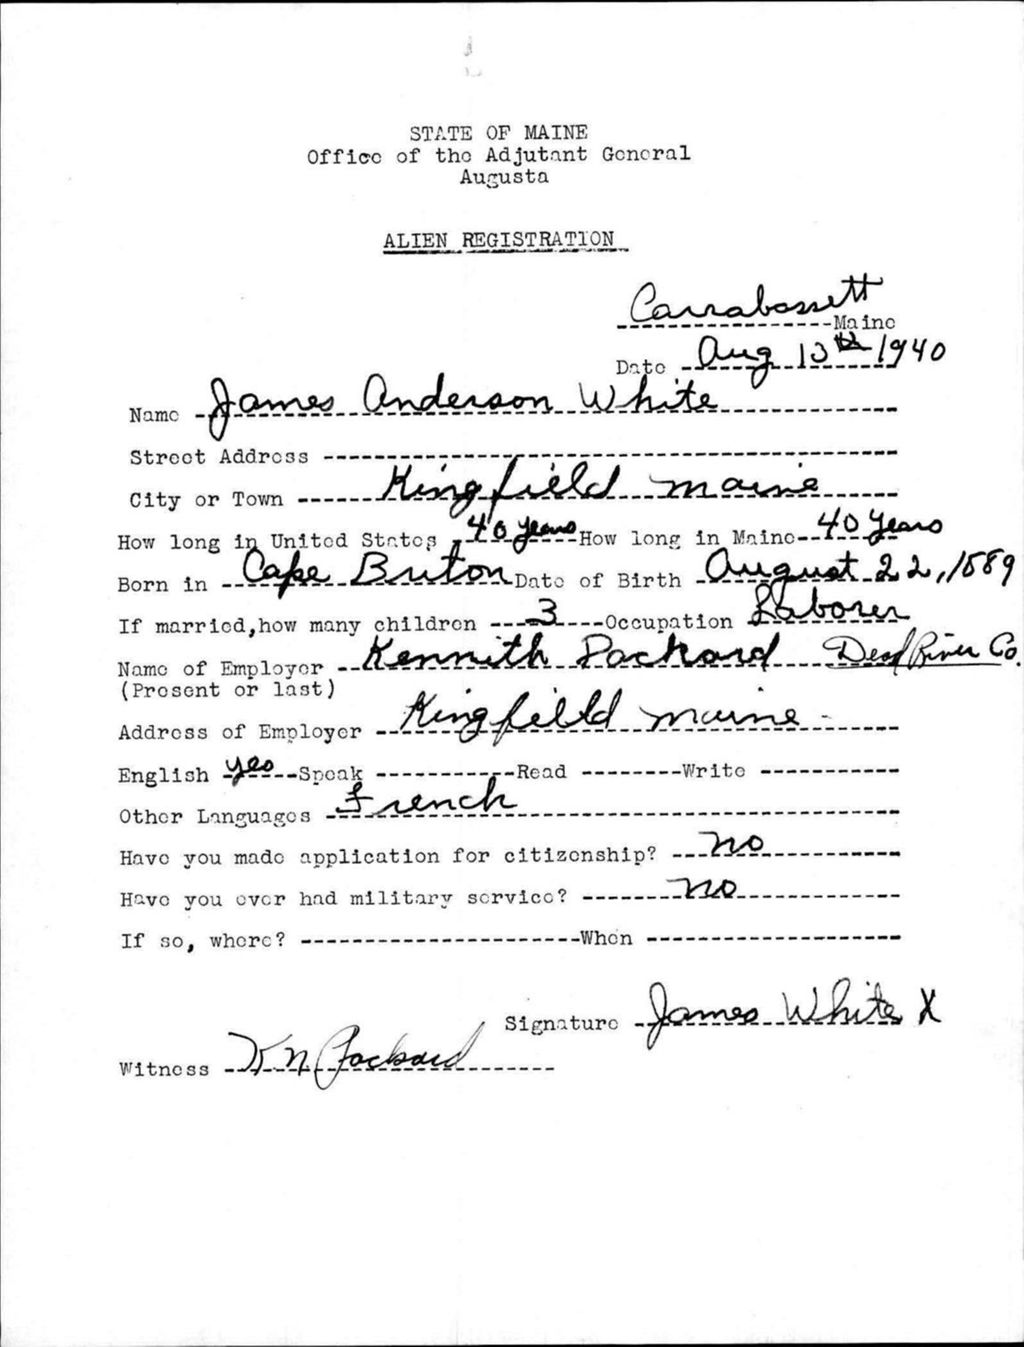 STATE OF MAINE
Office of the Adjutant General
Augusta
ALIEN REGISTRATION
Carrabassett Maine
Date Aug 13th 1940
Name James Anderson White
Street Address
City or Town Kingfield Maine
How long in United States 40 years How long in Maine 40 Years
Born in Cape Briton Date of Birth August 22, 1889
If married, how many children 3 Occupation Laborer
Name of Employer Kennith Packard Dead River Co.
(Present or last)
Address of Employer Kingfield Maine
English yes Speak Read Write
Other Languages French
Have you made application for citizenship? no
Have you ever had military service? no
If so, where? When
Signature James White X
Witness K N Packard